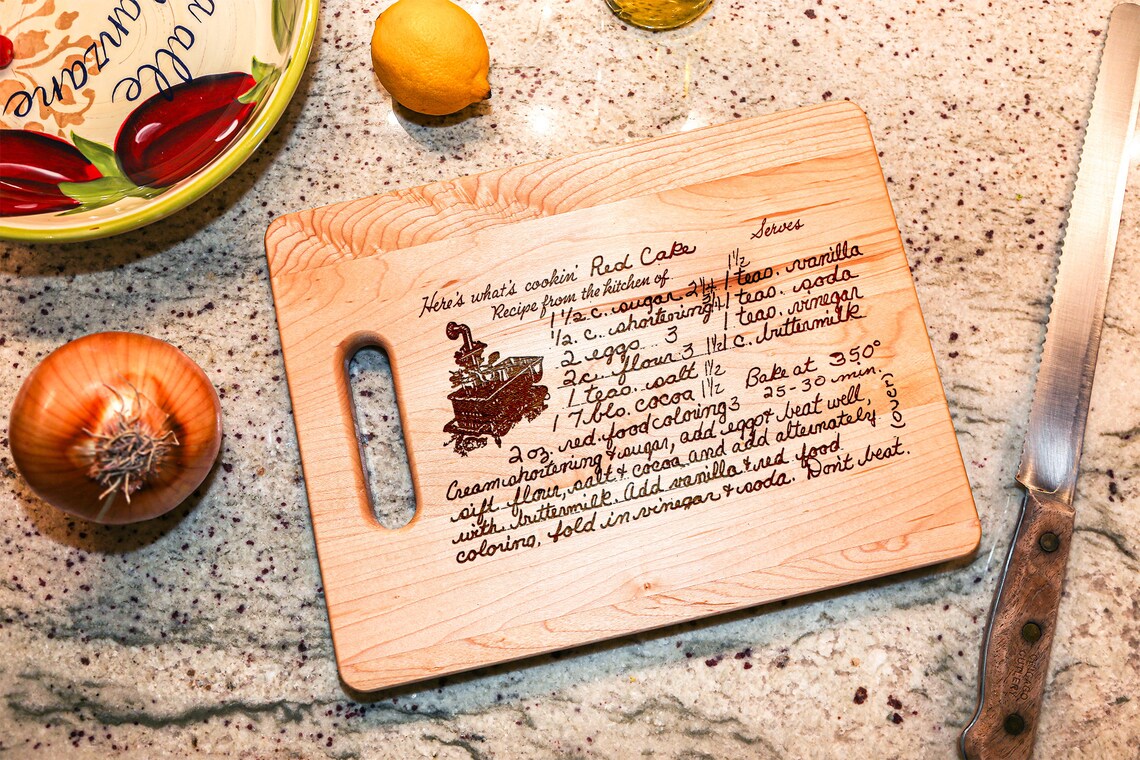 a alle
anzane
Serves
Here's what's cookin' Red Cake
Recipe from the kitchen of
1 1/2 c. sugar 2 1/4 1 teas. vanilla
1/2 c. shortening 3/4 1 teas. soda
2 eggs 3 1 teas. vinegar
2 c. flour 3 1 1/2 1 c. buttermilk
1 teas. salt 1 1/2
1 7 bls. cocoa 1 1/2 Bake at 350°
2 oz. red food coloring 3 25-30 min.
Cream shortening & sugar, add eggs & beat well,
sift flour, salt & cocoa and add alternately
with buttermilk. Add vanilla & red food
coloring, fold in vinegar & soda. Don't beat.
(over)
CHICAGO
CUTLERY